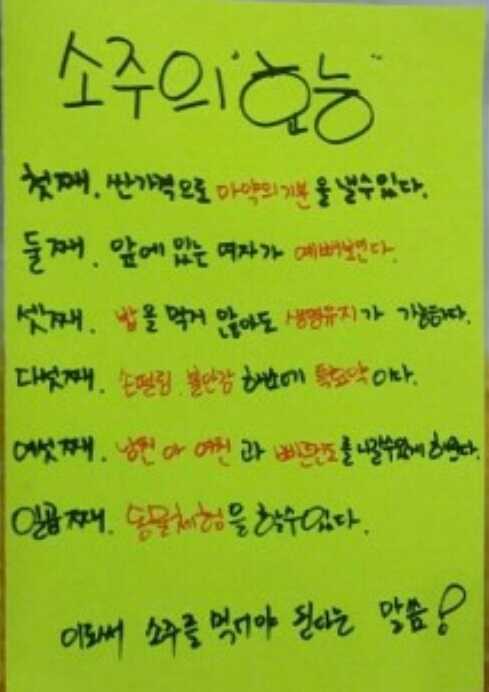 소주의 "효능"
첫째. 싼가격으로 마약의기분을 낼수있다.
둘째. 앞에 있는 여자가 예뻐보인다.
셋째. 밥을 먹지 않아도 생명유지가 가능하다.
다섯째. 손떨림. 불안감 해소에 특효약이다.
여섯째. 남친 아 여친 과 빠른진도를 나갈수있게 해준다.
일곱째. 동물체험을 할수있다.
이로써 소주를 먹어야 된다는 말씀!